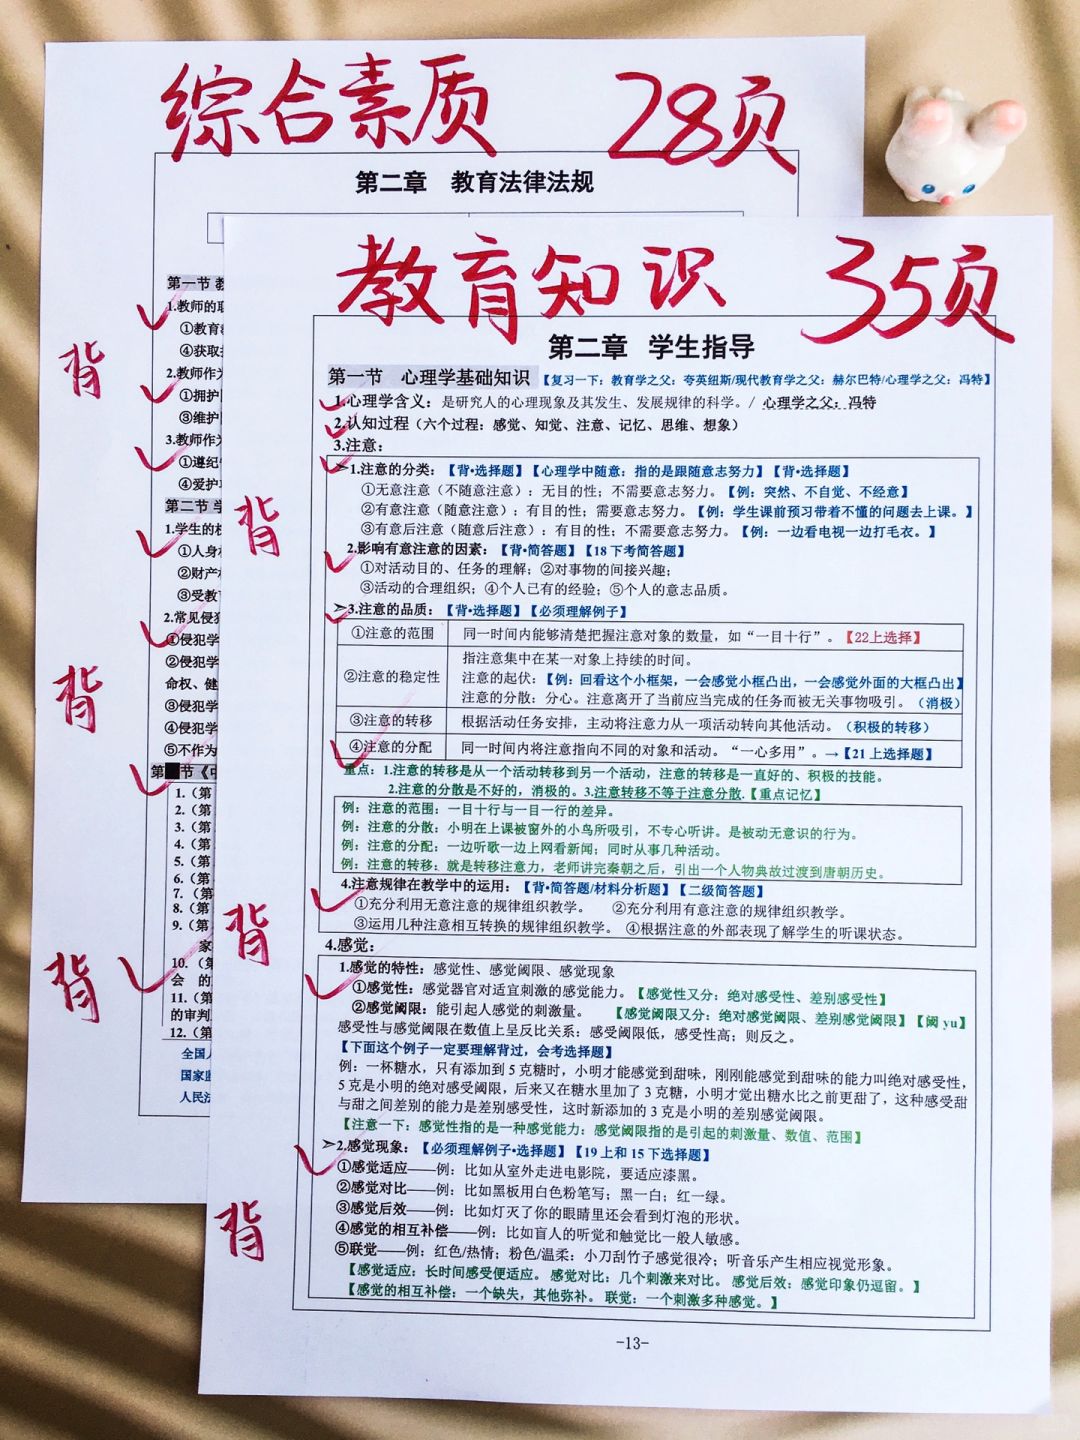 综合素质 28页
第二章 教育法律法规
第一节 教
1.教师的职
①教育
④获取
2.教师作为
①拥护
③维护
3.教师作为
①遵纪
④爱护
第二节 学
1.学生的权
①人身
②财产
③受教育
2.常见侵犯
①侵犯学
②侵犯学
命权、健
③侵犯学
④侵犯学
⑤不作为
节《中
1.（第
2.（第
3.（第
4.（第
5.（第
6.（第
7.（第
8.（第
9.（第
家
10.（第
会 的
11.（第
的审判
12.（第
全国人
国家监
人民法
背
背
背
教育知识 35页
第二章 学生指导
第一节 心理学基础知识【复习一下：教育学之父：夸美纽斯/现代教育学之父：赫尔巴特/心理学之父：冯特】
1.心理学含义：是研究人的心理现象及其发生、发展规律的科学。/ 心理学之父：冯特
2.认知过程（六个过程：感觉、知觉、注意、记忆、思维、想象）
3.注意：
➢1.注意的分类：【背•选择题】【心理学中随意：指的是跟随意志努力】【背•选择题】
①无意注意（不随意注意）：无目的性；不需要意志努力。【例：突然、不自觉、不经意】
②有意注意（随意注意）：有目的性；需要意志努力。【例：学生课前预习带着不懂的问题去上课。】
③有意后注意（随意后注意）：有目的性；不需要意志努力。【例：一边看电视一边打毛衣。】
2.影响有意注意的因素：【背•简答题】【18下考简答题】
①对活动目的、任务的理解；②对事物的间接兴趣；
③活动的合理组织；④个人已有的经验；⑤个人的意志品质。
➢3.注意的品质：【背•选择题】【必须理解例子】
①注意的范围 同一时间内能够清楚把握注意对象的数量，如“一目十行”。【22上选择】
②注意的稳定性 指注意集中在某一对象上持续的时间。
注意的起伏：【例：回看这个小框架，一会感觉小框凸出，一会感觉外面的大框凸出】
注意的分散：分心。注意离开了当前应当完成的任务而被无关事物吸引。（消极）
③注意的转移 根据活动任务安排，主动将注意力从一项活动转向其他活动。（积极的转移）
④注意的分配 同一时间内将注意指向不同的对象和活动。“一心多用”。→【21上选择题】
重点：1.注意的转移是从一个活动转移到另一个活动，注意的转移是一直好的、积极的技能。
2.注意的分散是不好的，消极的。3.注意转移不等于注意分散.【重点记忆】
例：注意的范围：一目十行与一目一行的差异。
例：注意的分散：小明在上课被窗外的小鸟所吸引，不专心听讲。是被动无意识的行为。
例：注意的分配：一边听歌一边上网看新闻；同时从事几种活动。
例：注意的转移：就是转移注意力，老师讲完秦朝之后，引出一个人物典故过渡到唐朝历史。
4.注意规律在教学中的运用：【背•简答题/材料分析题】【二级简答题】
①充分利用无意注意的规律组织教学。 ②充分利用有意注意的规律组织教学。
③运用几种注意相互转换的规律组织教学。 ④根据注意的外部表现了解学生的听课状态。
4.感觉：
1.感觉的特性：感觉性、感觉阈限、感觉现象
①感觉性：感觉器官对适宜刺激的感觉能力。【感觉性又分：绝对感受性、差别感受性】
②感觉阈限：能引起人感觉的刺激量。 【感觉阈限又分：绝对感觉阈限、差别感觉阈限】【阈 yu】
感受性与感觉阈限在数值上呈反比关系：感受阈限低，感受性高；则反之。
【下面这个例子一定要理解背过，会考选择题】
例：一杯糖水，只有添加到 5 克糖时，小明才能感觉到甜味，刚刚能感觉到甜味的能力叫绝对感受性，
5 克是小明的绝对感受阈限，后来又在糖水里加了 3 克糖，小明才觉出糖水比之前更甜了，这种感受甜
与甜之间差别的能力是差别感受性，这时新添加的 3 克是小明的差别感觉阈限。
【注意一下：感觉性指的是一种感觉能力；感觉阈限指的是引起的刺激量、数值、范围】
➢2.感觉现象：【必须理解例子•选择题】【19 上和 15 下选择题】
①感觉适应——例：比如从室外走进电影院，要适应漆黑。
②感觉对比——例：比如黑板用白色粉笔写；黑一白；红一绿。
③感觉后效——例：比如灯灭了你的眼睛里还会看到灯泡的形状。
④感觉的相互补偿——例：比如盲人的听觉和触觉比一般人敏感。
⑤联觉——例：红色/热情；粉色/温柔；小刀刮竹子感觉很冷；听音乐产生相应视觉形象。
【感觉适应：长时间感受便适应。 感觉对比：几个刺激来对比。 感觉后效：感觉印象仍逗留。】
【感觉的相互补偿：一个缺失，其他弥补。 联觉：一个刺激多种感觉。】
-13-
背
背
背